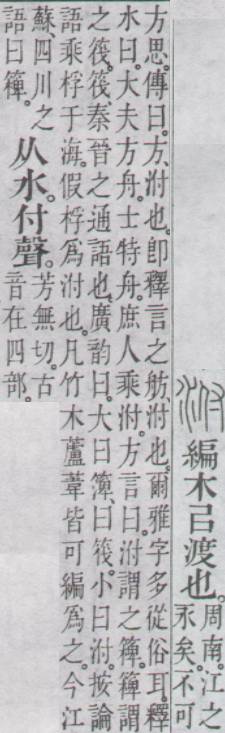 泭
編木㠯渡也。
周南。江之
永矣。不可
方思。傳曰。方、泭也。卽釋言之舫、泭也。爾雅字多從俗耳。釋
水曰。大夫方舟。士特舟。庶人乘泭。方言曰。泭謂之簰。簰謂
之筏。筏、秦晉之通語也。廣韵曰。大曰簰、曰筏。小曰泭。按論
語乘桴于海。假桴爲泭也。凡竹木蘆葦皆可編爲之。今江
蘇、四川之
語曰簰。
从水。付聲。
芳無切。古
音在四部。